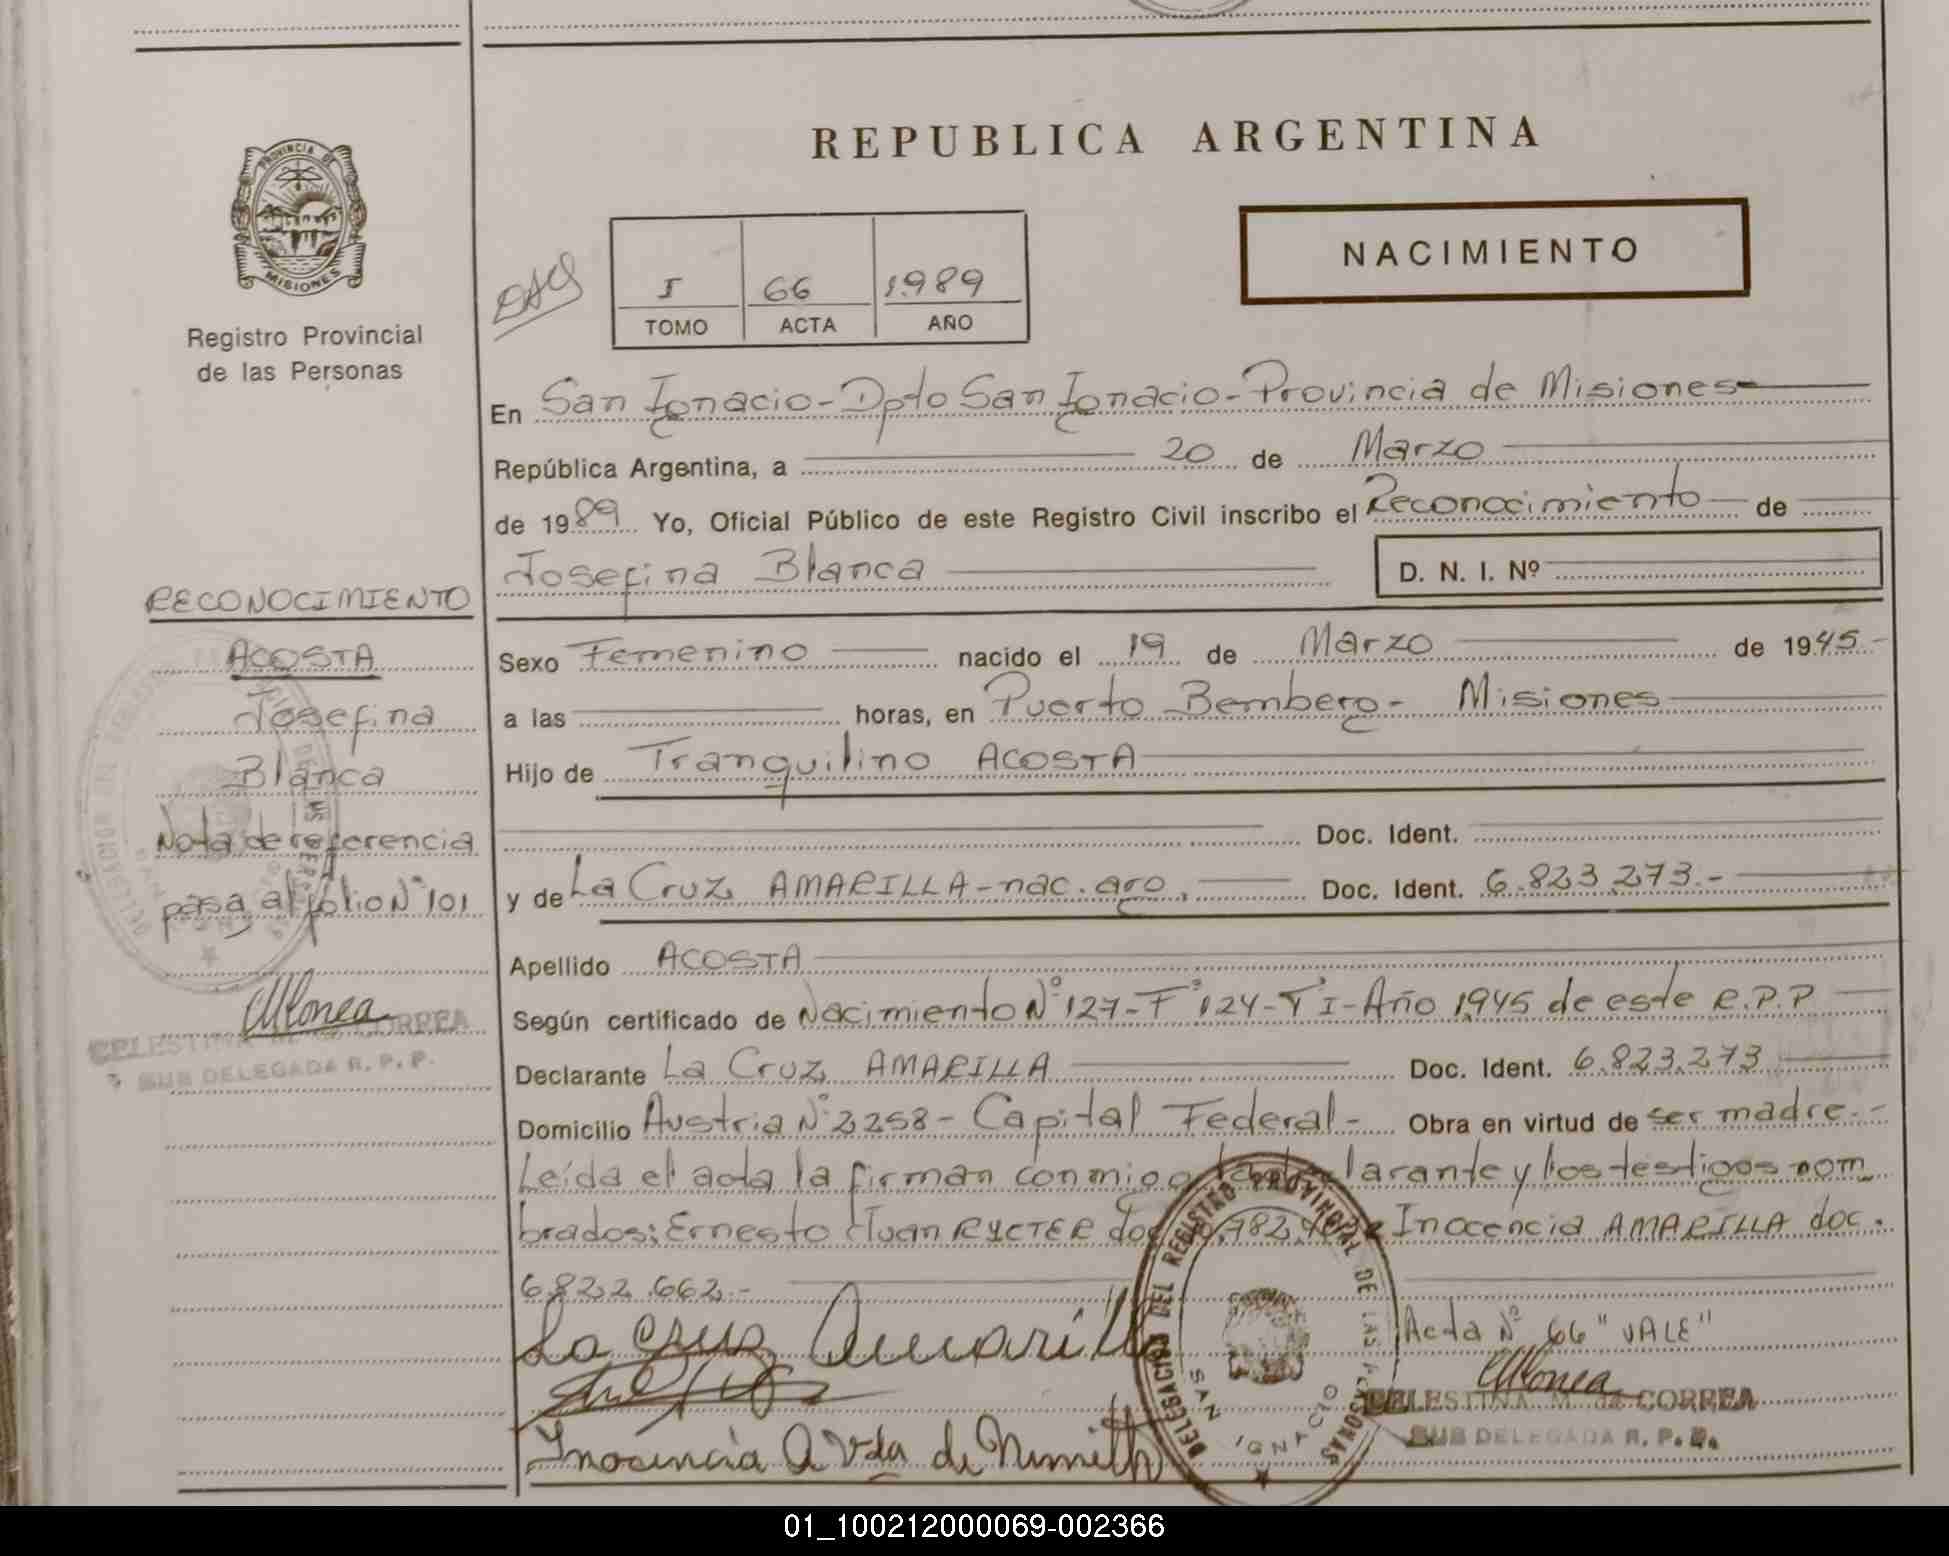 PROVINCIA DE
MISIONES
Registro Provincial
de las Personas
REPUBLICA ARGENTINA
NACIMIENTO
I 66 1989
TOMO ACTA AÑO
En San Ignacio - Dpto San Ignacio - Provincia de Misiones
República Argentina, a 20 de Marzo
de 1989 Yo, Oficial Público de este Registro Civil inscribo el Reconocimiento de
Josefina Blanca D. N. I. Nº
RECONOCIMIENTO
ACOSTA
Josefina
Blanca
Nota de referencia
pasa al folio Nº 101
CELESTINA M. de CORREA
SUB DELEGADA R. P. P.
Sexo Femenino nacido el 19 de Marzo de 1945.-
a las horas, en Puerto Bemberg - Misiones
Hijo de Tranquilino ACOSTA
Doc. Ident.
y de La Cruz AMARILLA - nac. arg. Doc. Ident. 6.823.273.-
Apellido ACOSTA
Según certificado de Nacimiento Nº 127 - Fº 124 - Tº I - Año 1945 de este R.P.P
Declarante La Cruz AMARILLA Doc. Ident. 6.823.273
Domicilio Austria Nº 2258 - Capital Federal - Obra en virtud de ser madre.-
Leída el acta la firman conmigo larante y los testigos nom
brados; Ernesto Juan RYCTER doc Inocencia AMARILLA doc.
6.822.662.-
La Cruz Amarilla
Inosencia A Vda de Nemeth
DELEGACION DEL REGISTRO PROVINCIAL DE LAS PERSONAS
SAN IGNACIO
Acta Nº 66 "VALE"
CELESTINA M. de CORREA
SUB DELEGADA R. P. P.
01_100212000069-002366